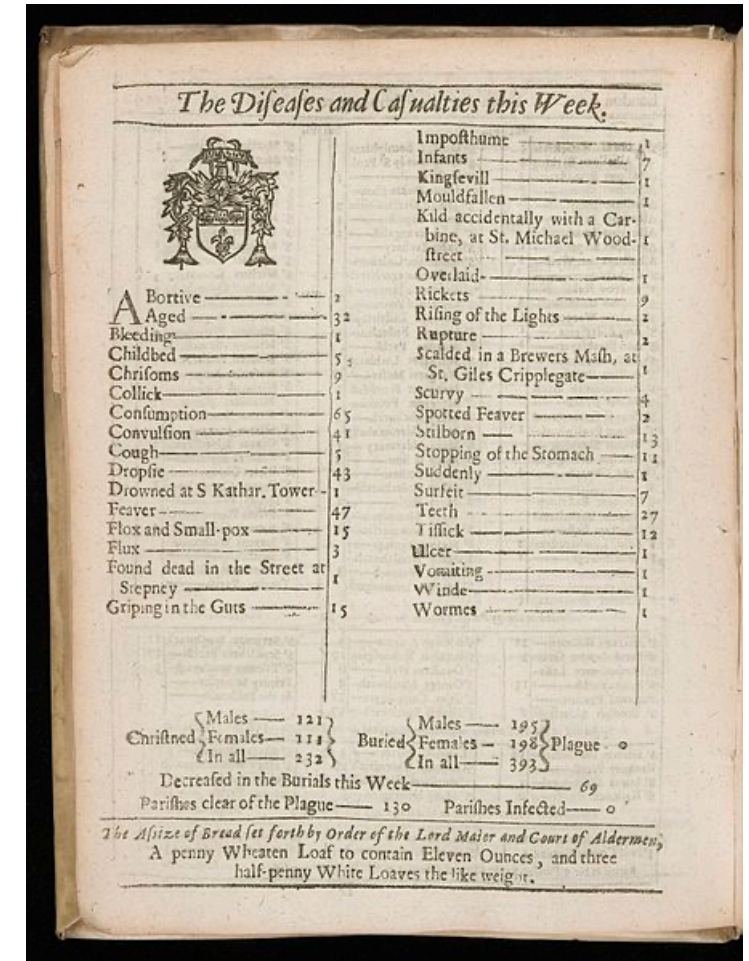 The Diſeaſes and Caſualties this Week.
ABortive 2
Aged 32
Bleeding 1
Childbed 5
Chriſoms 9
Collick 1
Conſumption 65
Convulſion 41
Cough 5
Dropſie 43
Drowned at S Kathar. Tower 1
Feaver 47
Flox and Small-pox 15
Flux 3
Found dead in the Street at
Stepney 1
Griping in the Guts 15
Impoſthume 1
Infants 7
Kingſevill 1
Mouldfallen 1
Kild accidentally with a Car-
bine, at St. Michael Wood- 1
ſtreet
Overlaid 1
Rickets 9
Riſing of the Lights 2
Rupture 2
Scalded in a Brewers Maſh, at
St. Giles Cripplegate 1
Scurvy 4
Spotted Feaver 2
Stilborn 13
Stopping of the Stomach 11
Suddenly 1
Surfeit 7
Teeth 27
Tiſſick 12
Ulcer 1
Vomiting 1
Winde 1
Wormes 1
Chriſtned
Males 121
Females 111
In all 232
Buried
Males 195
Females 198
In all 393
Plague 0
Decreaſed in the Burials this Week 69
Pariſhes clear of the Plague 130 Pariſhes Infected 0
The Aſsize of Bread ſet forth by Order of the Lord Maier and Court of Aldermen,
A penny Wheaten Loaf to contain Eleven Ounces, and three
half-penny White Loaves the like weight.